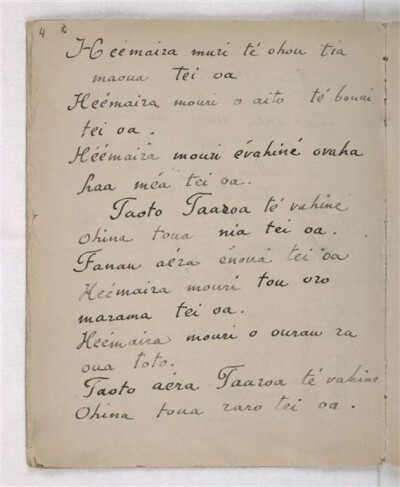 4
Héémaira muri té ohou tia
maoua tei oa
Héémaira mouri o aito té bouai
tei oa.
Héémaira mouri évahiné ovaha
haa méa tei oa.
Taoto Taaroa té vahiné
Ohina toua nia tei oa.
Fanau aéra énoua tei oa
Héémaira mouri tou oro
marama tei oa.
Héémaira mouri o ourau ra
oua toto.
Taoto aéra Taaroa té vahine
Ohina toua raro tei oa.